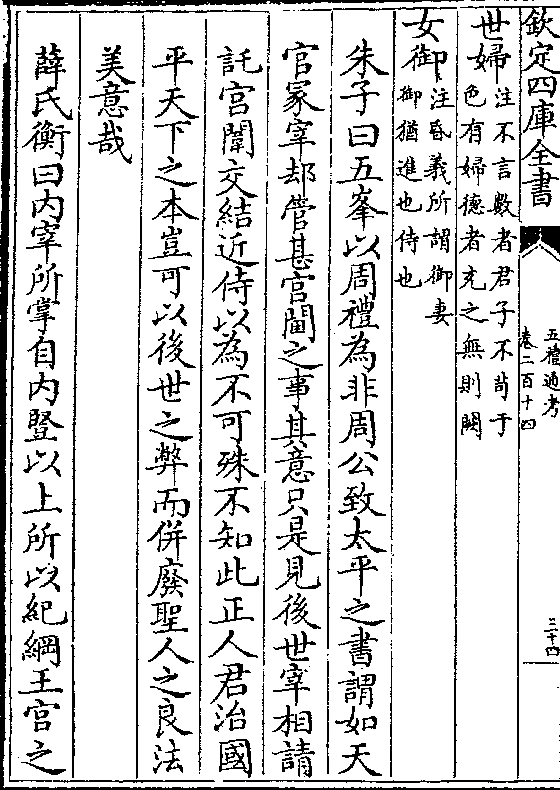 欽定四庫全書
五禮通考
卷二百十四
三十四
世婦注不言數者君子不苟于
色有婦德者充之無則闕
女御注昏義所謂御妻
御猶進也侍也
朱子曰五峯以周禮為非周公致太平之書謂如天
官冢宰却管甚宮閫之事其意只是見後世宰相請
託宮闈交結近侍以為不可殊不知此正人君治國
平天下之本豈可以後世之弊而併廢聖人之良法
美意哉
薛氏衡曰內宰所掌自內豎以上所以紀綱王宮之